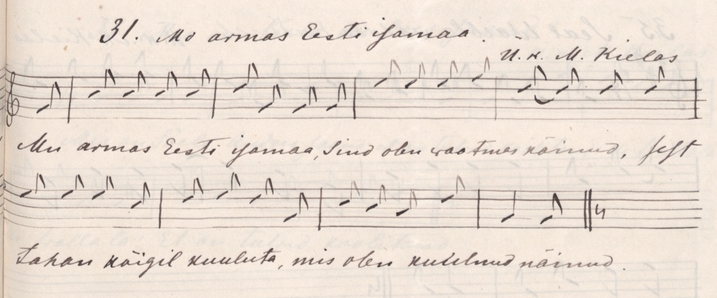 31. Mo armas Eesti isamaa.
U. n. M. Kielas
Mu armas Eesti isamaa, Sind olen waatmes näinud, sest
tahan kõigil kuuluta, mis olen kutelnud näinud.